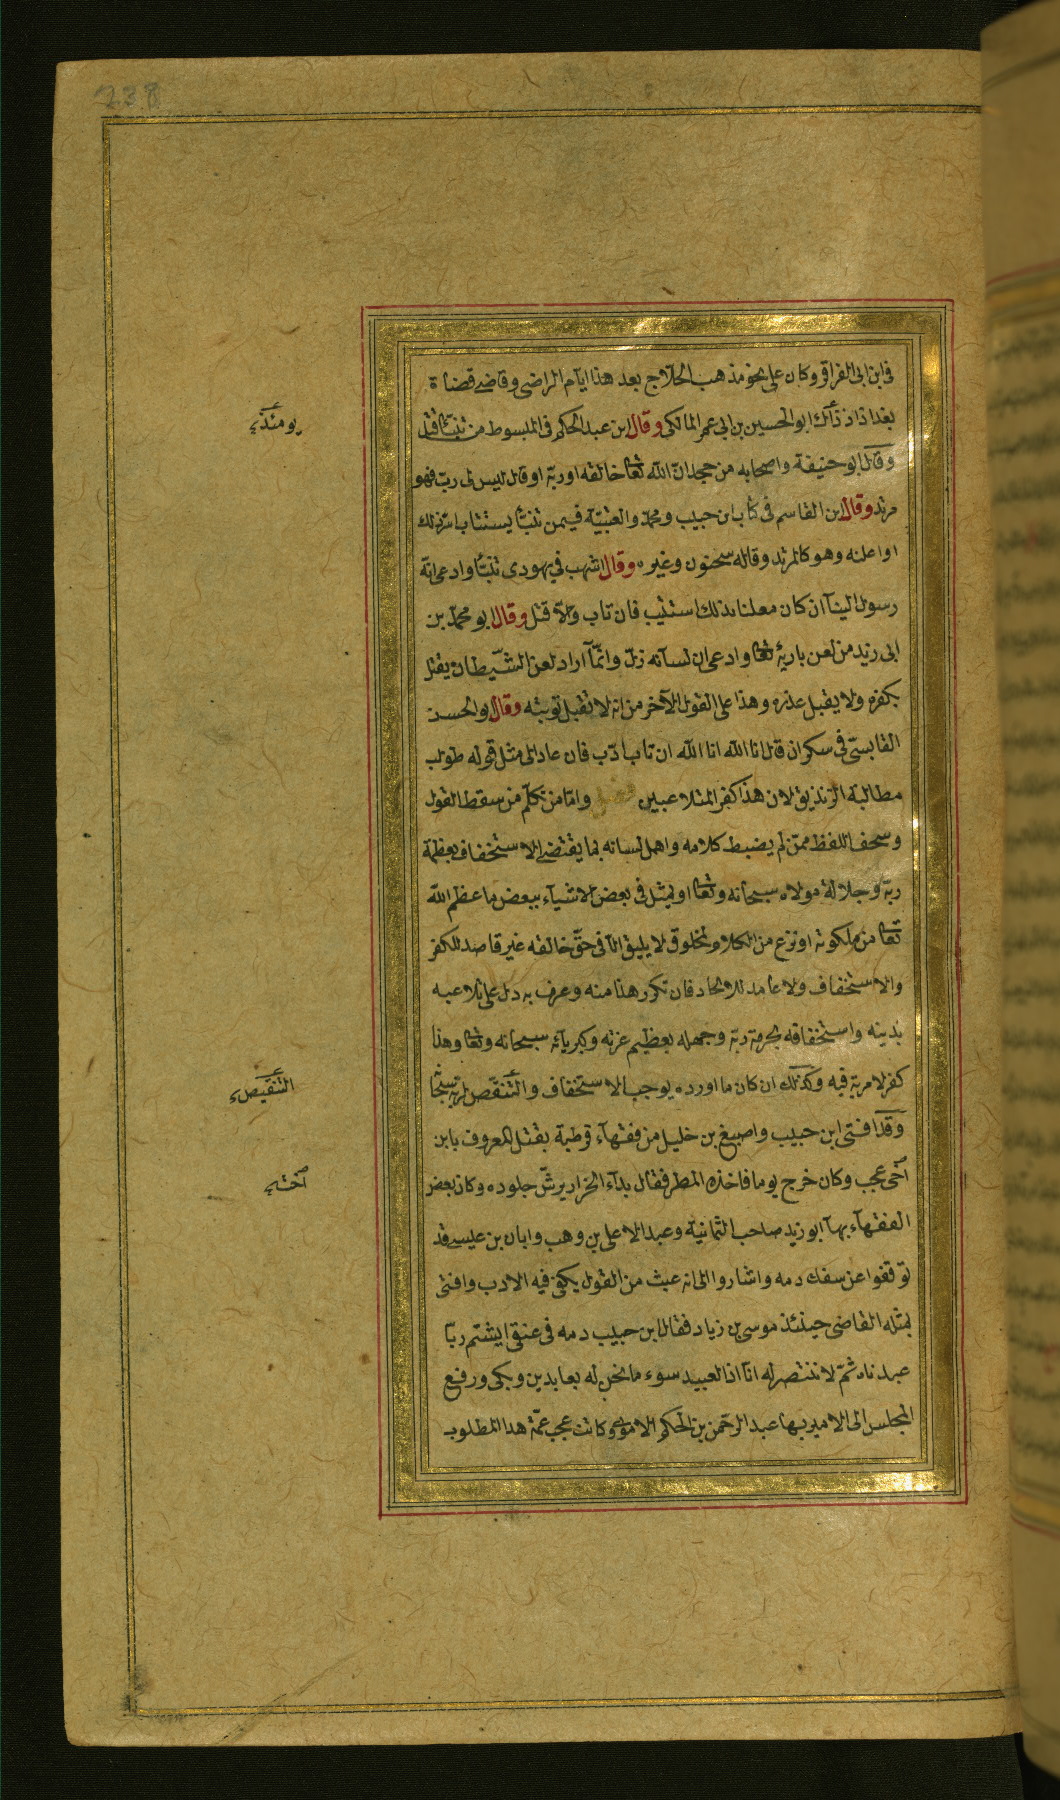 238
فى ابن ابى الفراقر وكان على نحو مذهب الحلاج بعد هذا ايام الراضى وقاضى قضاة
بغداذ اذ ذاك ابو الحسين بن ابى عمر المالكى وقال ابن عبد الحكم فى المبسوط من تنبّأ قتل
يومئذ
وقال ابو حنيفة واصحابه من جحد انّ الله تعا خالقه او ربّه او قال ليس لى ربّ فهو
مرتد وقال ابن القاسم فى كتاب ابن حبيب ومحمّد والعتبيّة فيمن تنبّأ يستتاب اسرّ ذلك
او اعلنه وهو كالمرتد وقاله سحنون وغيره وقال اشهب فى يهودى تنبّأ وادعى انّه
رسول الينا ان كان معلنا بذلك استتيب فان تاب والّا قتل وقال ابو محمّد بن
ابى زيد من لعن باريه تعا وادعى ان لسانه زلّ وانّما اراد لعن الشّيطان يقتل
بكفره ولا يقبل عذره وهذا على القول الآخر من انه لا تقبل توبته وقال ابو الحسن
القابسىّ فى سكران قال انا الله انا الله ان تاب ادّب فان عاد الى مثل قوله طولب
مطالبة الزنديق لان هذا كفر المتلاعبين فصل وامّا من تكلّم من سقط القول
وسخف اللفظ ممّن لم يضبط كلامه واهمل لسانه بما يقتضى الاستخفاف بعظمة
ربّه وجلالة مولاه سبحانه وتعا او تمثل فى بعض الاشياء ببعض ما عظم الله
تعا من ملكوته او نزع من الكلام لمخلوق لا يليق الا فى حقّ خالقه غير قاصد للكفر
والاستخفاف ولا عامد للالحاد فان تكرر هذا منه وعرف به دل على تلاعبه
بدينه واستخفافه بحرمة ربّه وجهله بعظيم عزته وكبريائه سبحانه وتعا وهذا
كفر لا مرية فيه وكذلك ان كان ما اورده يوجب الاستخفاف والتنقّص لربّه
التنقيص
وقد افتى ابن حبيب واصبغ بن خليل من فقهاء قرطبة بقتل المعروف بابن
اخى عجب وكان خرج يوما فاخذه المطر فقال بدأ الخراز يرشّ جلوده وكان بعض
اخت
الفقهاء بها ابو زيد صاحب الثمانية وعبد الاعلى بن وهب وابان بن عيسى قد
توقفوا عن سفك دمه واشاروا الى انه عبث من القول يكفى فيه الادب وافتى
بمثله القاضى حينئذ موسى بن زياد فقال ابن حبيب دمه فى عنقى ايشتم ربّا
عبدناه ثمّ لا ننتصر له انّا اذا لعبيد سوء ما نحن له بعابدين وبكى ورفع
المجلس الى الامير بها عبد الرحمن بن الحكم الاموى وكانت عجب عمّة هذا المطلوب